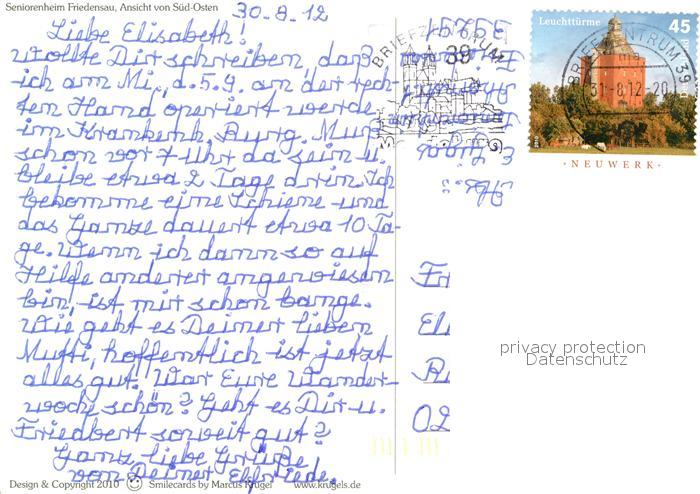 Seniorenheim Friedensau, Ansicht von Süd-Osten
30.8.12
Liebe Elisabeth!
Wollte Dir schreiben, daß
ich am Mi., d. 5.9. an der rech-
ten Hand operiert werde
im Krankenh. Burg. Muß
schon vor 7 Uhr da sein u.
bleibe etwa 2 Tage drin. Ich
bekomme eine Schiene und
das Ganze dauert etwa 10 Ta-
ge. Wenn ich dann so auf
Hilfe anderer angewiesen
bin, ist mir schon bange.
Wie geht es Deiner lieben
Mutti, hoffentlich ist jetzt
alles gut. War Eure Wander-
woche schön? Geht es Dir u.
Friedbert soweit gut?
Ganz liebe Grüße
von Deiner Elfriede.
Design & Copyright 2010 Smilecards by Marcus Krügel www.krugels.de
39291
BRIEFZENTRUM
39
Leuchttürme 45
BRIEFZENTRUM 39
31-8.12-20
2010
NEUWERK
Abs.:
Fr
El
02
privacy protection
Datenschutz